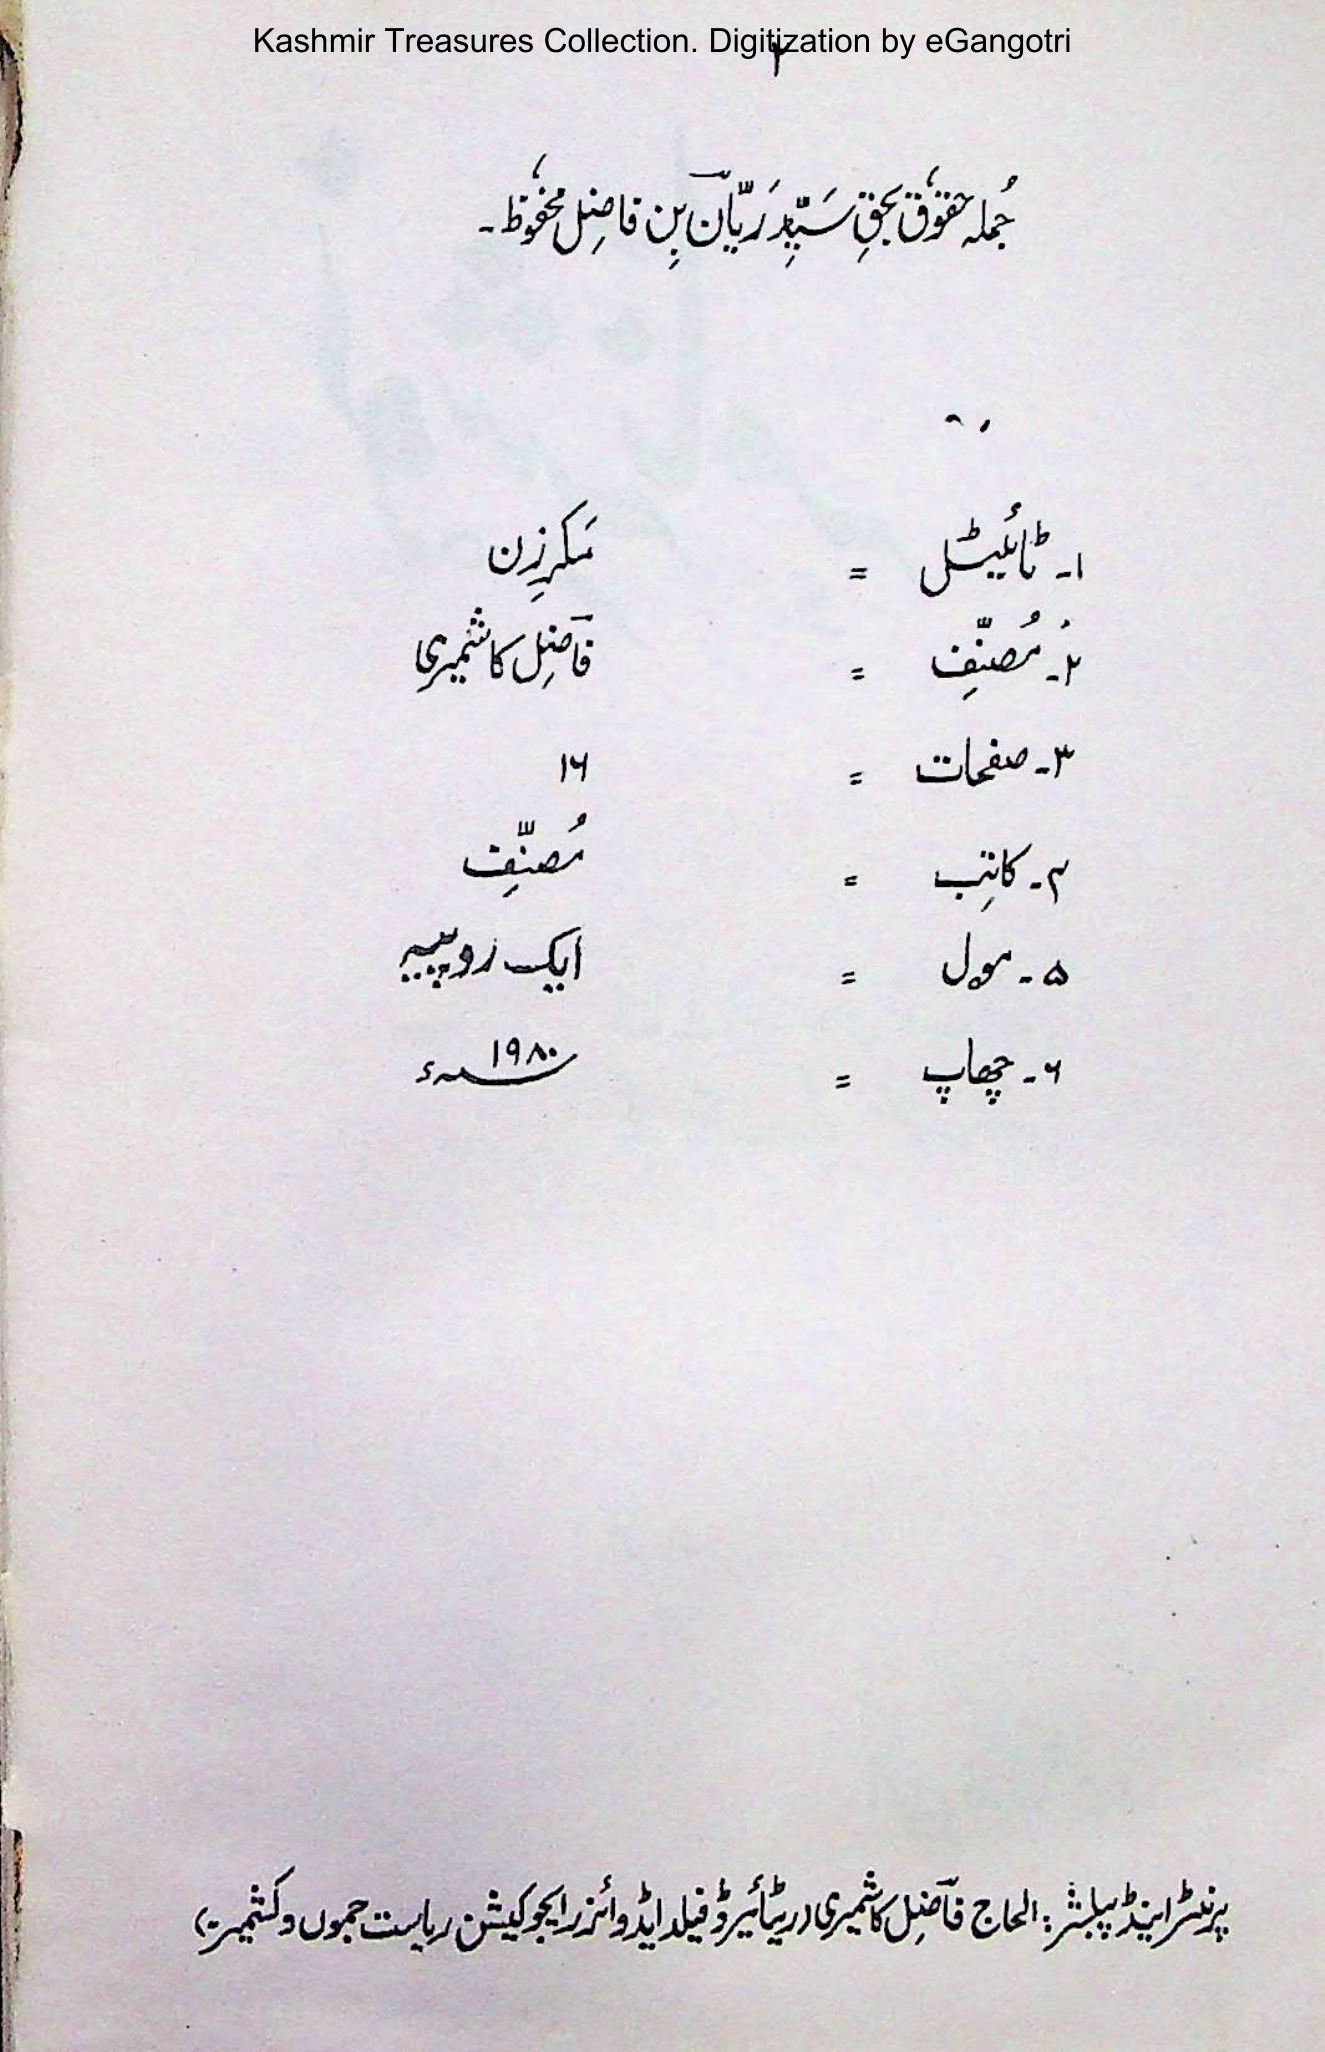 Kashmir Treasures Collection. Digitization by eGangotri
۲
جُملہ حقوٗق بحقِ سَیّدِ رَیّان بِن فاضِل محفوٗظ۔
۱۔ ٹائیٹل = مَکرزِن
۲۔ مُصنّفِ = فاضِل کاشمیری
۳۔ صفحات = ۱۶
۴۔ کاتِب = مُصنّفِ
۵۔ مول = ایک روپیہ
۶۔ چھاپ = ۱۹۸۰ء
پرنٹر اینڈ پبلشر: الحاج فاضِل کاشمیری (ریٹائیرڈ فیلڈ ایڈوائزر ایجوکیشن ریاست جموں و کشمیر)